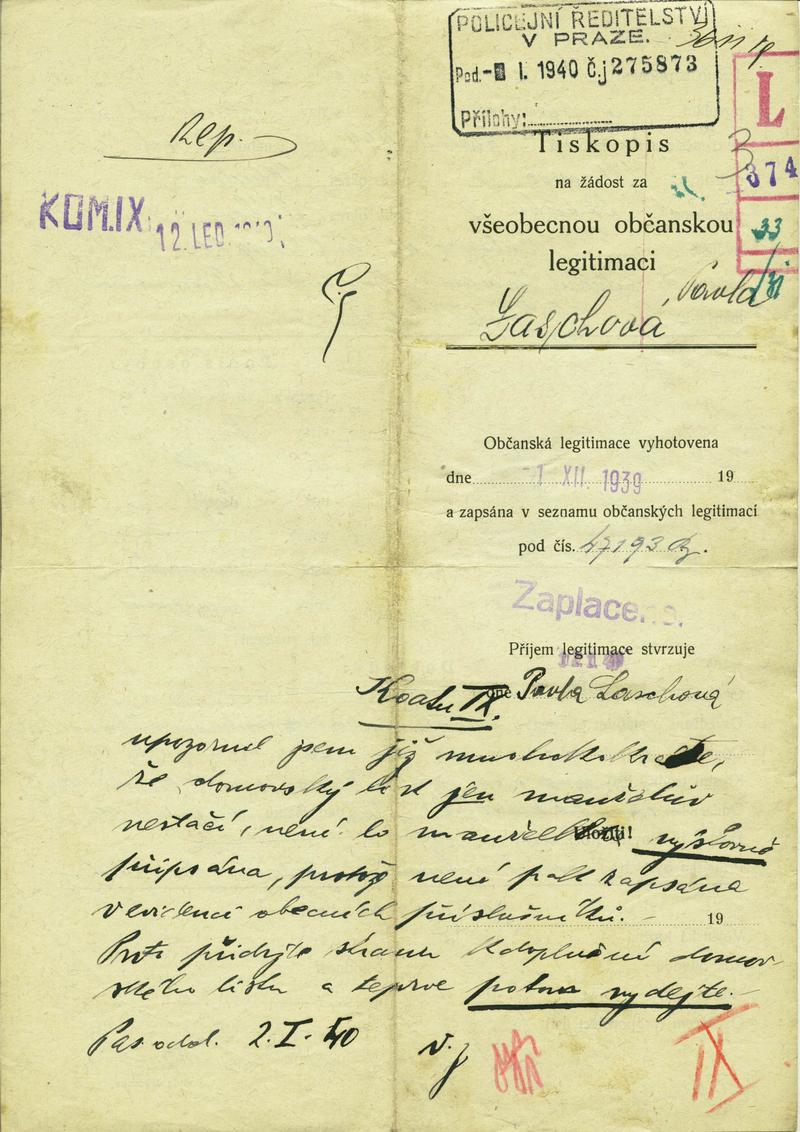 POLICEJNÍ ŘEDITELSTVÍ
V PRAZE.
Pod. - I. 1940 Č.j 275873
Přílohy:
L
374
33
Rep.
KOM.IX.
12. LED.
Tiskopis
na žádost za
všeobecnou občanskou
legitimaci
Laschová, Pavla
Občanská legitimace vyhotovena
dne -1 XII. 1939 19
a zapsána v seznamu občanských legitimací
pod čís. 47193
Zaplaceno.
Příjem legitimace stvrzuje
dne Pavla Laschová
Koatu IX.
upozornil jsem již mnohokráte,
že domovský list jen manželův
nestačí, není-li manželka výslovně
připsána, protož není pak zapsána
v evidenci obecních příslušníků. -
19
Proto přidržte stranu k doplnění domov-
ského listu a teprve potom vydejte. -
Pas. odd. 2. I. 40
IX